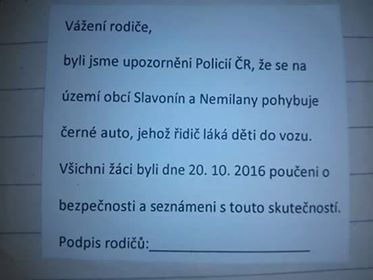 Vážení rodiče,
byli jsme upozorněni Policií ČR, že se na
území obcí Slavonín a Nemilany pohybuje
černé auto, jehož řidič láká děti do vozu.
Všichni žáci byli dne 20. 10. 2016 poučeni o
bezpečnosti a seznámeni s touto skutečností.
Podpis rodičů:____________________